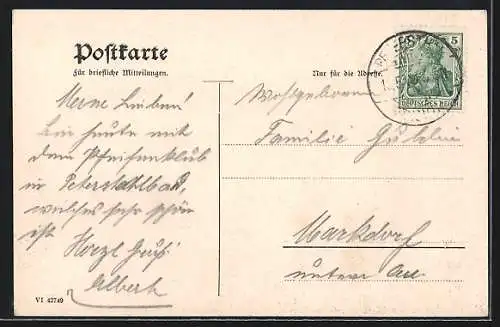 Postkarte
Für briefliche Mitteilungen.
Nur für die Adresse.
5
DEUTSCHES REICH
Meine Lieben!
Bin heute mit
dem Pfeifenklub
in Peterstahlbad,
welches sehr schön
ist
Herzl Gruß
Albert
Wohlgeboren
Familie
Markdorf
unter
VI 42749